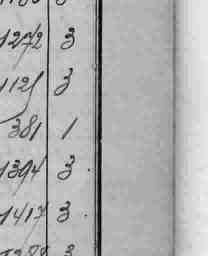 1272 3
1125 3
381 1
1394 3
1417 3
3